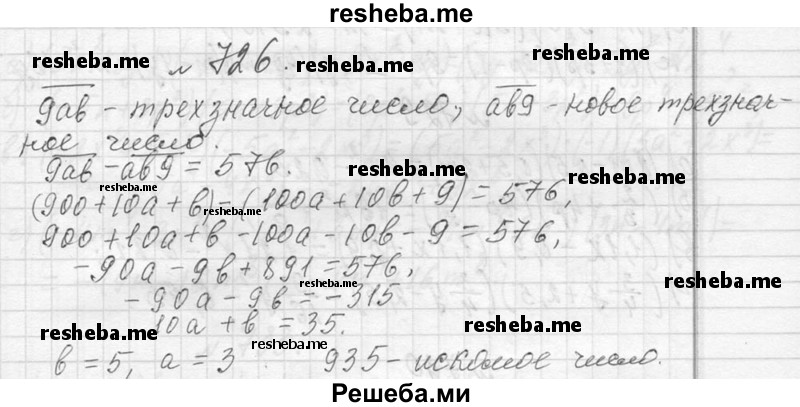 resheba.me
resheba.me № 726. resheba.me
9ab - трехзначное число, ab9 - новое трехзнач-
ное число.
9ab - ab9 = 576. resheba.me resheba.me
resheba.me
(900+10a+b)-(100a+10b+9)=576,
resheba.me
900+10a+b-100a-10b-9=576,
-90a-9b+891=576,
-90a-9b=-315 resheba.me
10a+b=35. resheba.me
resheba.me resheba.me
b=5, a=3 935- искомое число.
Решеба.ми